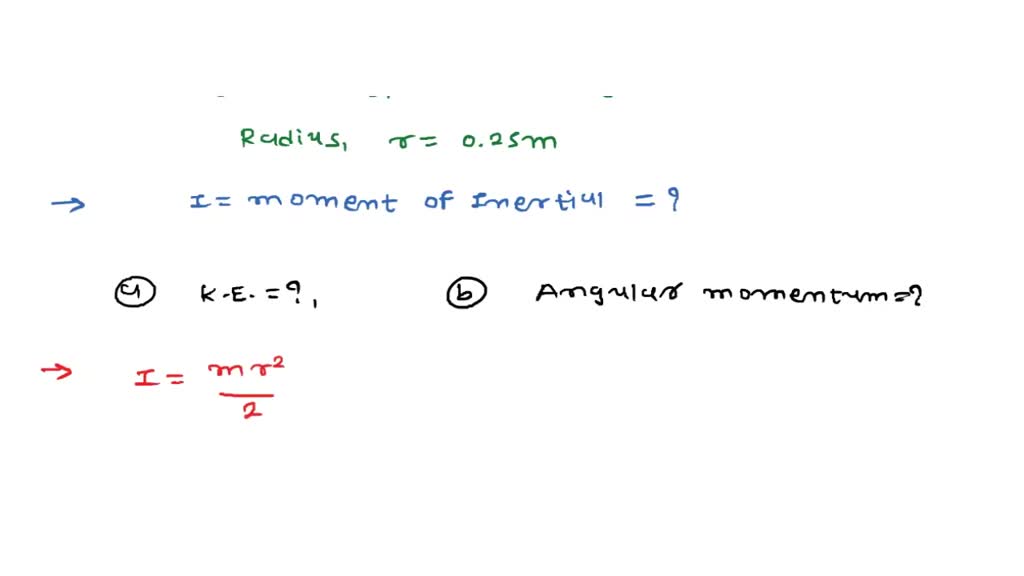 Radius, r = 0.25m
→ I = moment of Inertial = ?
(a) K.E. = ?, (b) Angular momentum = ?
→ I = mr²/2